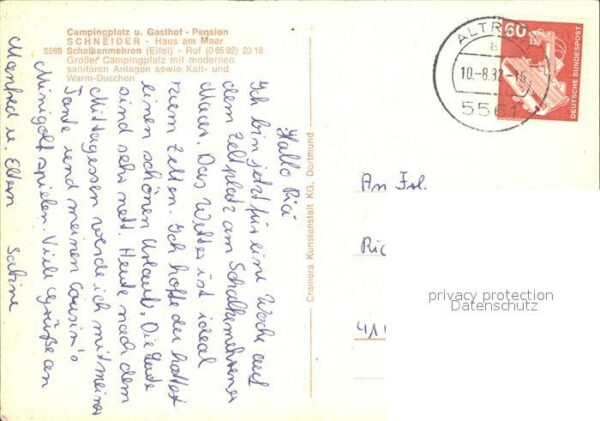 Campingplatz u. Gasthof - Pension
SCHNEIDER - Haus am Maar
5589 Schalkenmehren (Eifel) - Ruf (0 65 92) 23 18
Großer Campingplatz mit modernen
sanitären Anlagen sowie Kalt- und
Warm-Duschen
Hallo Rici
Ich bin jetzt für eine Woche auf
dem Zeltplatz am Schalkenmehrener
Maar. Das Wetter ist ideal
zum Zelten. Ich hoffe du hattest
einen schönen Urlaub. Die Leute
sind sehr nett. Heute nach dem
Mittagessen werde ich mit meiner
Tante und meinen Cousin's
Minigolf spielen. Viele Grüße an
Manfred u. Eltern Sabine
Cramers Kunstanstalt KG. Dortmund
60
DEUTSCHE BUNDESPOST
ALTR
a
10.-8.82-16
5561
An Frl.
Ric
41
privacy protection
Datenschutz